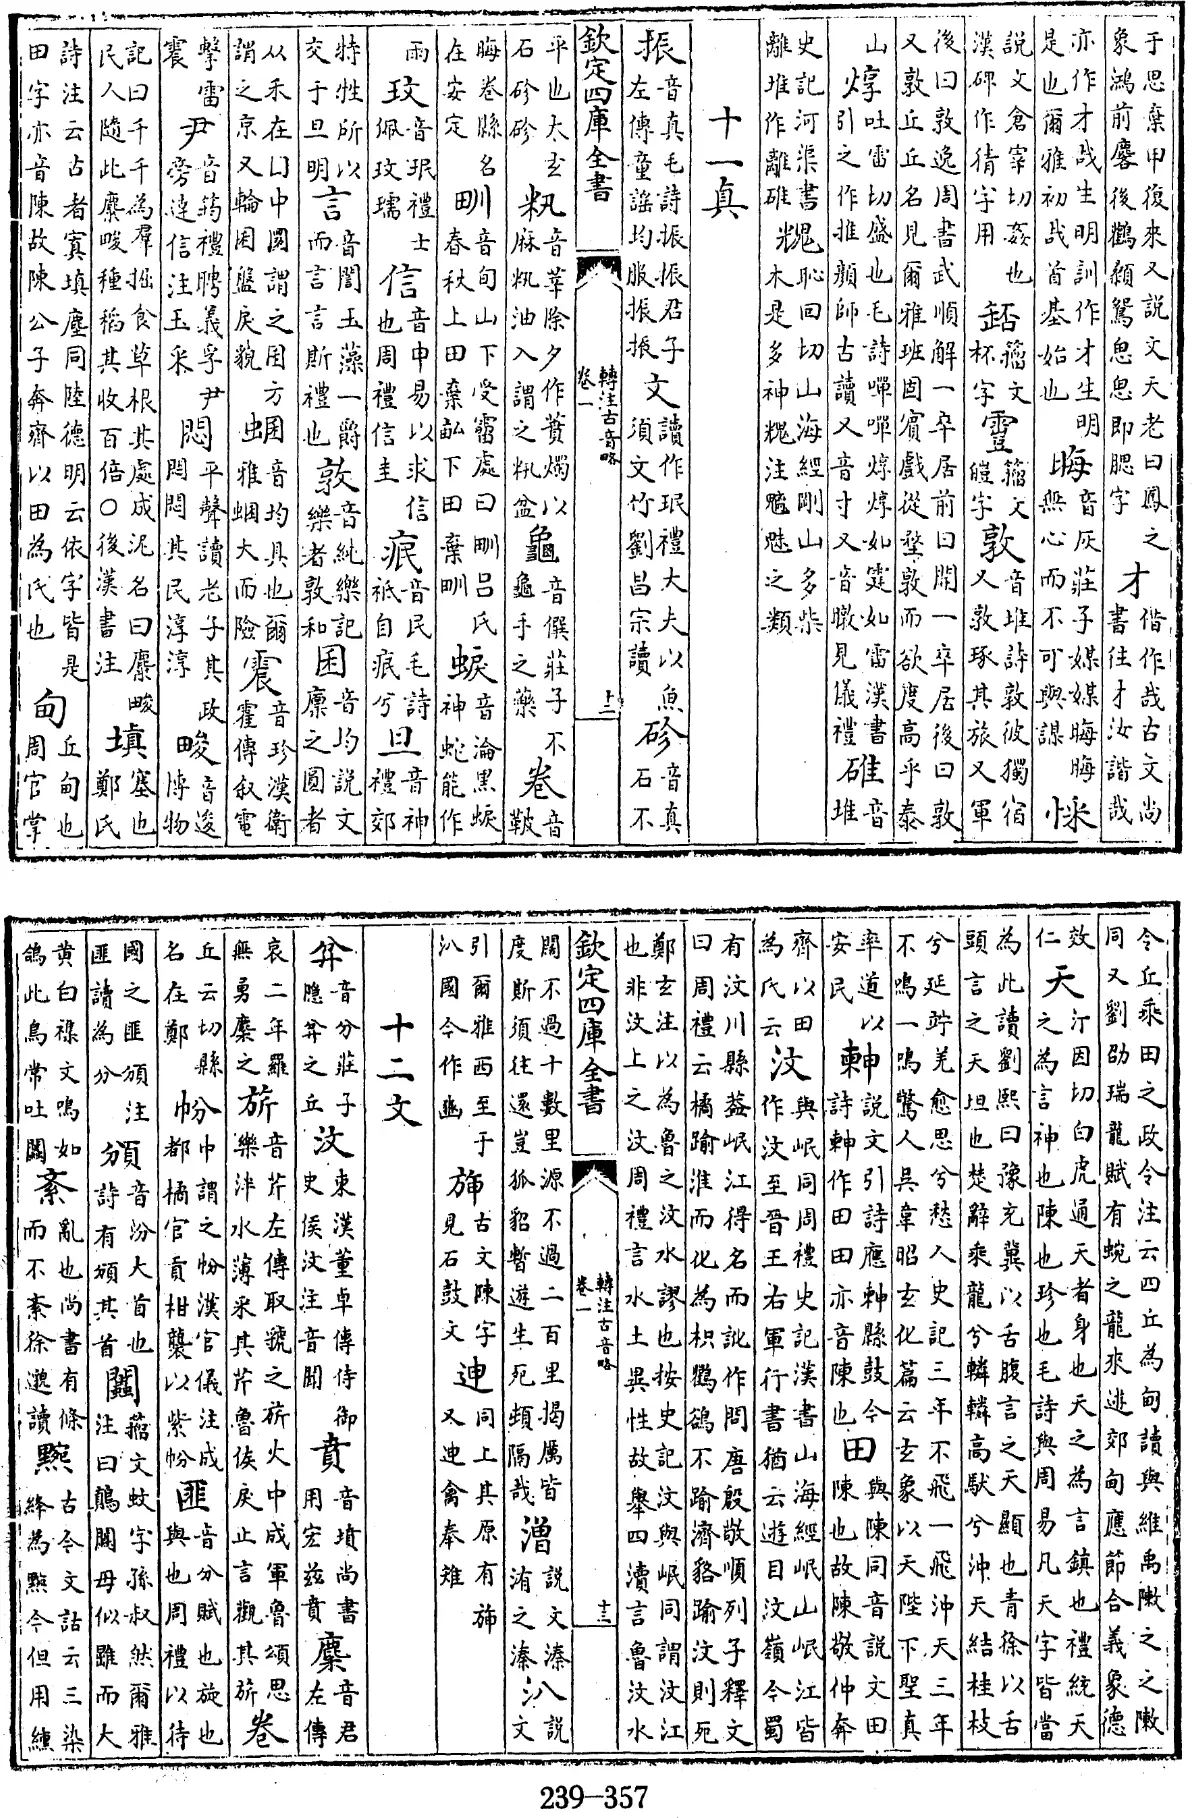 于思棄甲復來又說文天老曰鳳之象鴻前麐後鸛顙鴛思思即腮字才偕作哉古文尚書往才汝諧哉
亦作才哉生明訓作才生明是也爾雅初哉首基始也晦音灰莊子媒媒晦晦無心而不可與謀
說文倉宰切姦也漢碑作猜字用籀文杯字籀文皚字敦音堆詩敦彼獨宿又敦琢其旅又軍
後曰敦逸周書武順解一卒居前曰開一卒居後曰敦又敦丘丘名見爾雅班固賓戲從敦而欲度高乎泰
山焞吐雷切盛也毛詩嘽嘽焞焞如霆如雷漢書引之作推顏師古讀又音寸又音暾見儀禮碓音堆
史記河渠書離堆作離碓恥回切山海經剛山多柴木是多神注魑魅之類
十一真
振音真毛詩振振君子左傳童謠均服振振文讀作珉禮大夫以魚須文竹劉昌宗讀砛音真石不
欽定四庫全書
轉注古音略
卷一
十二
平也太玄石砛砛籸音莘除夕作蕡燭以麻籸油入謂之籸盆龜音僎莊子不龜手之藥卷音鞁
晦卷縣名在安定甽音旬山下受霤處曰甽呂氏春秋上田棄畝下田棄甽蜧音淪黑蜧神蛇能作
雨玟音珉禮士佩玟瓀信音申易以求信也周禮信圭痕音民毛詩祇自痕兮旦音神禮郊
特牲所以交于旦明言音誾玉藻一爵而言言斯禮也敦音純樂記樂者敦和囷音均說文廩之圓者
从禾在囗中圜謂之囷方謂之京又輪囷盤戾貌蜠音均貝也爾雅蜠大而險震音珍漢衛霍傳叙電
擊雷震尹音筠禮聘義孚尹旁達信注玉采悶平聲讀老子其政悶悶其民淳淳畯音逡博物
記曰千千為羣掘食草根其處成泥名曰麋畯民人隨此麋畯種稻其收百倍○後漢書注填塞也鄭氏
詩注云古者寘填塵同陸德明云依字皆是田字亦音陳故陳公子奔齊以田為氏也甸丘甸也周官掌
令丘乘田之政令注云四丘為甸讀與維禹敶之之敶同又劉劭瑞龍賦有蜿之龍來遊郊甸應節合義象德
效仁天汀因切白虎通天者身也天之為言鎮也禮統天之為言神也陳也珍也毛詩與周易凡天字皆當
為此讀劉熙曰豫充冀以舌腹言之天顯也青徐以舌頭言之天坦也楚辭乘龍兮轔轔高馱兮沖天結桂枝
兮延竚羌愈思兮愁人史記三年不飛一飛沖天三年不鳴一鳴驚人吳韋昭玄化篇云玄象以天陛下聖真
率道以安民𣌾說文引詩應𣌾縣鼓今詩𣌾作田田亦音陳也田與陳同音說文田陳也故陳敬仲奔
齊以田為氏云汶與岷同周禮史記漢書山海經岷山岷江皆作汶至晉王右軍行書猶云遊目汶嶺今蜀
有汶川縣葢岷江得名而訛作問唐殷敬順列子釋文曰周禮云橘踰淮而化為枳鸜鵒不踰濟貉踰汶則死
鄭玄注以為魯之汶水謬也按史記汶與岷同謂汶江也非汶上之汶周禮言水土異性故舉四瀆言魯汶水
欽定四庫全書
轉注古音略
卷一
十三
闊不過十數里源不過二百里揭厲皆度斯須往還豈狐貂暫遊生死頓隔哉潧說文潧洧之溱汃說文
引爾雅西至于汃國今作豳古文陳字見石鼓文迪同上其原有又迪禽奉雉
十二文
弅音分莊子隱弅之丘汶東漢董卓傳侍御史侯汶注音聞賁音墳尚書用宏兹賁麇音君左傳
哀二年羅無勇麇之旂音芹左傳取虢之旂火中成軍魯頌思樂泮水薄采其芹魯侯戾止言觀其旂卷
丘云切縣名在鄭帉巾謂之帉漢官儀注成都橘官貢柑襲以紫帉匪音分賦也旋也與也周禮以待
國之匪頒注匪讀為分頒音汾大首也詩有頒其首籀文蚊字孫叔然爾雅注曰鷏母似雖而大
黃白襍文鳴如鴿此鳥常吐紊亂也尚書有條而不紊徐邈讀黦古今文詁云三染絳為黦今但用纁
239—357